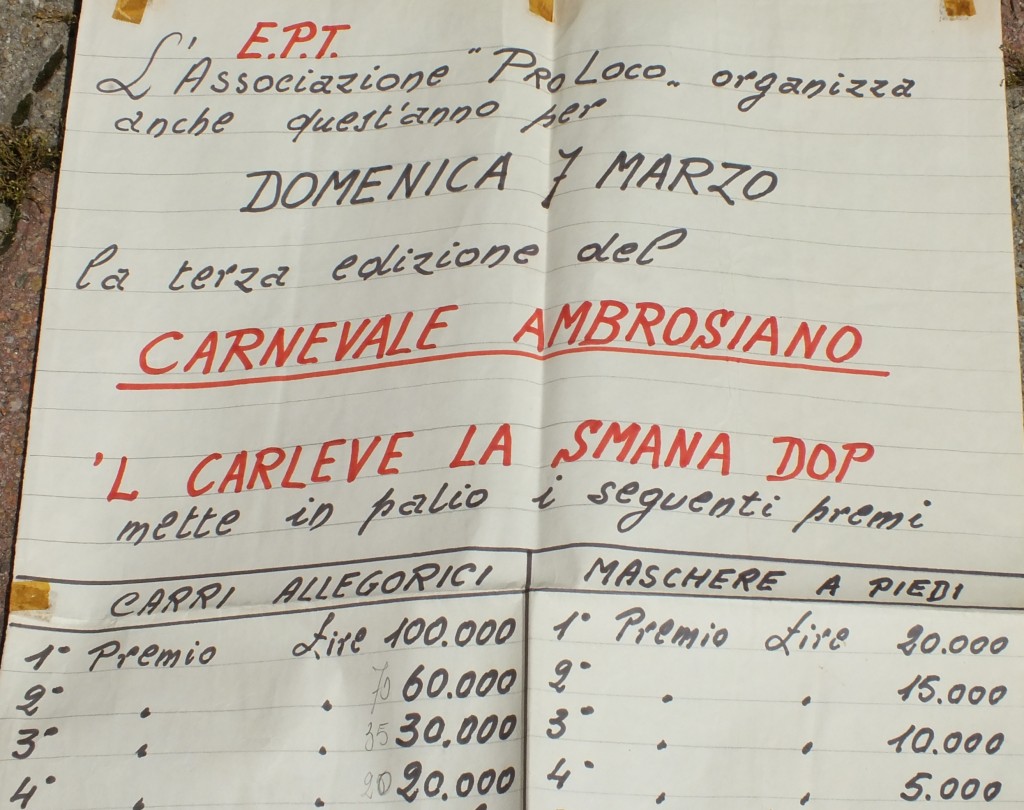 E.P.T.
L'Associazione "PRO LOCO" organizza
anche quest'anno per
DOMENICA 7 MARZO
la terza edizione del
CARNEVALE AMBROSIANO
'L CARLEVE LA SMANA DOP
mette in palio i seguenti premi
CARRI ALLEGORICI MASCHERE A PIEDI
1° Premio Lire 100.000 1° Premio Lire 20.000
2° " " 70 60.000 2° " " 15.000
3° " " 35 30.000 3° " " 10.000
4° " " 20 20.000 4° " " 5.000